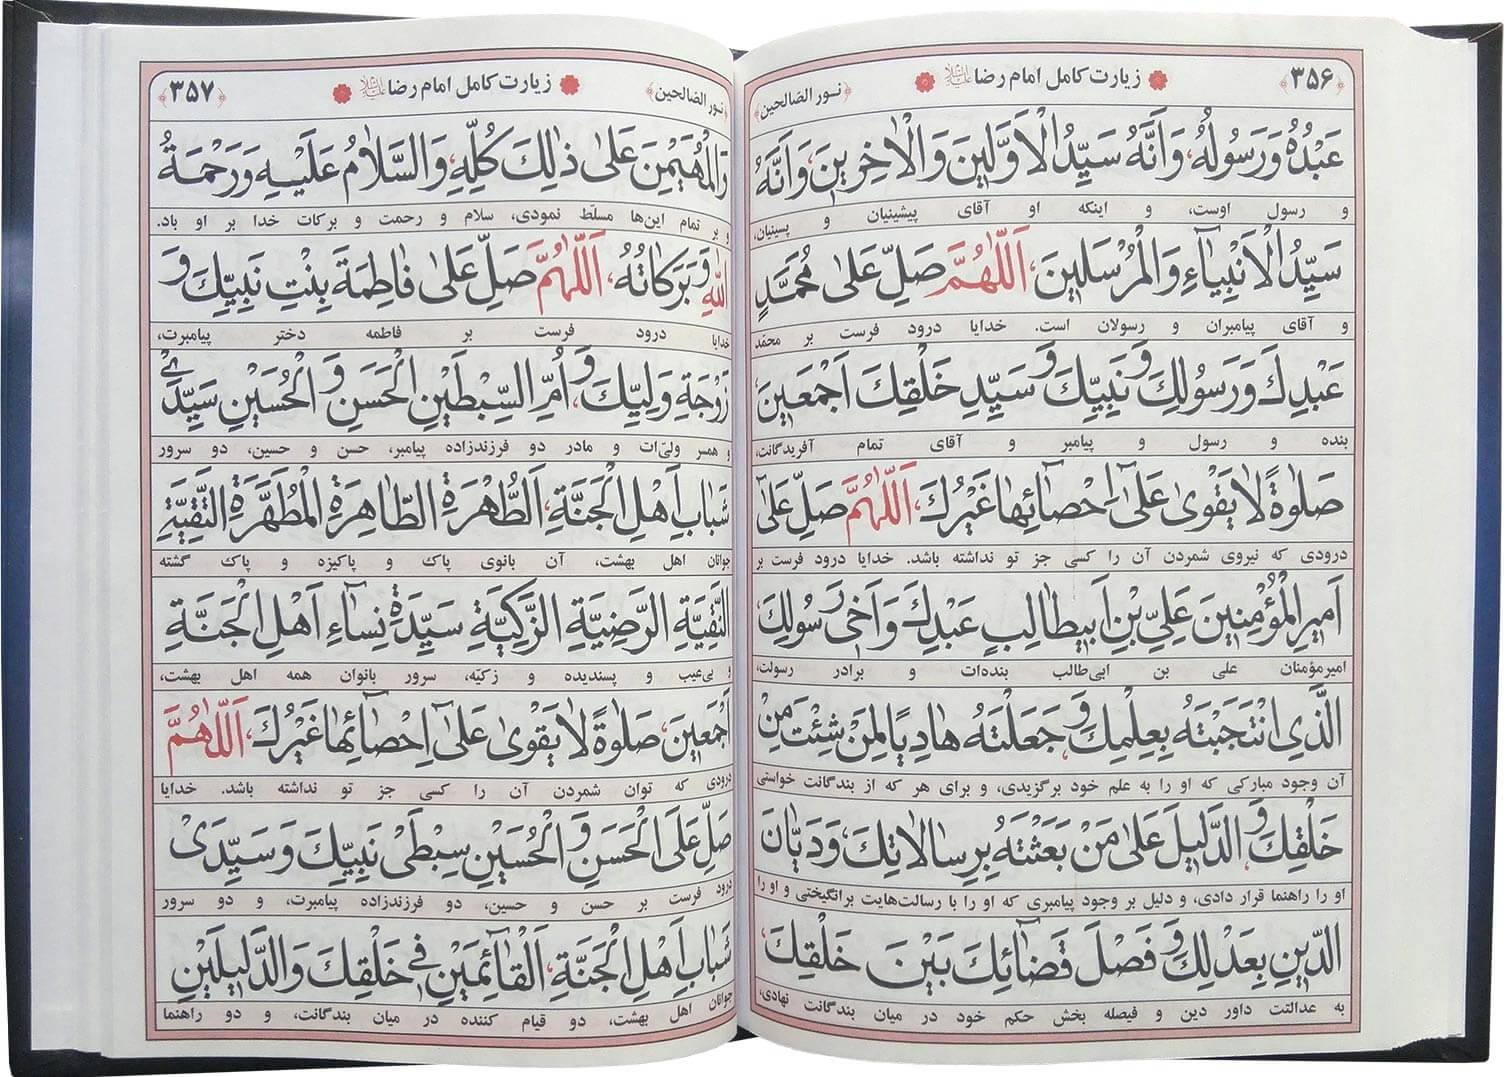 ﴿۳۵۶﴾ زیارت کامل امام رضا علیه‌السلام ﴿نور الصالحین﴾
عَبْدُهُ وَرَسُولُهُ، وَاَنَّهُ سَيِّدُ الْاَوَّلينَ وَالْاخِرينَ، وَاَنَّهُ
و رسول اوست، و اینکه او آقای پیشینیان و پسینیان،
سَيِّدُ الْاَنْبِيآءِ وَالْمُرْسَلينَ، اَللّٰهُمَّ صَلِّ عَلى مُحَمَّدٍ
و آقای پیامبران و رسولان است. خدایا درود فرست بر محمّد
عَبْدِكَ وَرَسُولِكَ وَنَبِيِّكَ وَسَيِّدِ خَلْقِكَ اَجْمَعينَ،
بنده و رسول و پیامبر و آقای تمام آفریدگانت،
صَلٰوةً لا يَقْوىٰ عَلىٰٓ اِحْصآئِها غَيْرُكَ، اَللّٰهُمَّ صَلِّ عَلىٰٓ
درودی که نیروی شمردن آن را کسی جز تو نداشته باشد. خدایا درود فرست بر
اَميرِ الْمُؤْمِنينَ عَلِيِّ بْنِ اَبيطالِبٍ عَبْدِكَ وَاَخي رَسُولِكَ،
امیرمؤمنان علی بن ابی‌طالب بنده‌ات و برادر رسولت،
الَّذِي انْتَجَبْتَهُ بِعِلْمِكَ، وَجَعَلْتَهُ هادِيًا لِمَنْ شِئْتَ مِنْ
آن وجود مبارکی که او را به علم خود برگزیدی، و برای هر که از بندگانت خواستی
خَلْقِكَ، وَالدَّليلَ عَلىٰ مَنْ بَعَثْتَهُ بِرِسالاتِكَ، وَدَيّانَ
او را راهنما قرار دادی، و دلیل بر وجود پیامبری که او را با رسالت‌هایت برانگیختی و او را
الدّينِ بِعَدْلِكَ، وَفَصْلَ قَضآئِكَ بَيْنَ خَلْقِكَ،
به عدالتت داور دین و فیصله بخش حکم خود در میان بندگانت نهادی،
﴿نور الصالحین﴾ زیارت کامل امام رضا علیه‌السلام ﴿۳۵۷﴾
وَالْمُهَيْمِنَ عَلىٰ ذٰلِكَ كُلِّهِ، وَالسَّلامُ عَلَيْهِ وَرَحْمَةُ
و بر تمام این‌ها مسلّط نمودی، سلام و رحمت و برکات خدا بر او باد.
اللهِ وَبَرَكاتُهُ، اَللّٰهُمَّ صَلِّ عَلىٰ فاطِمَةَ بِنْتِ نَبِيِّكَ وَ
خدایا درود فرست بر فاطمه دختر پیامبرت،
زَوْجَةِ وَلِيِّكَ، وَاُمِّ السِّبْطَيْنِ الْحَسَنِ وَالْحُسَيْنِ سَيِّدَيْ
و همسر ولیّ‌ات و مادر دو فرزندزاده پیامبر، حسن و حسین، دو سرور
شَبابِ اَهْلِ الْجَنَّةِ، اَلطُّهْرَةِ الطّاهِرَةِ الْمُطَهَّرَةِ التَّقِيَّةِ
جوانان اهل بهشت، آن بانوی پاک و پاکیزه و پاک گشته
النَّقِيَّةِ الرَّضِيَّةِ الزَّكِيَّةِ سَيِّدَةِ نِسآءِ اَهْلِ الْجَنَّةِ
و بی‌عیب و پسندیده و زکیّه، سرور بانوان همه اهل بهشت،
اَجْمَعينَ، صَلٰوةً لا يَقْوىٰ عَلىٰٓ اِحْصآئِها غَيْرُكَ، اَللّٰهُمَّ
درودی که توان شمردن آن را کسی جز تو نداشته باشد. خدایا
صَلِّ عَلَى الْحَسَنِ وَالْحُسَيْنِ سِبْطَيْ نَبِيِّكَ وَسَيِّدَيْ
درود فرست بر حسن و حسین، دو فرزندزاده پیامبرت، و دو سرور
شَبابِ اَهْلِ الْجَنَّةِ، اَلْقآئِمَيْنِ في خَلْقِكَ وَالدَّليلَيْنِ
جوانان اهل بهشت، دو قیام کننده در میان بندگانت، و دو راهنما